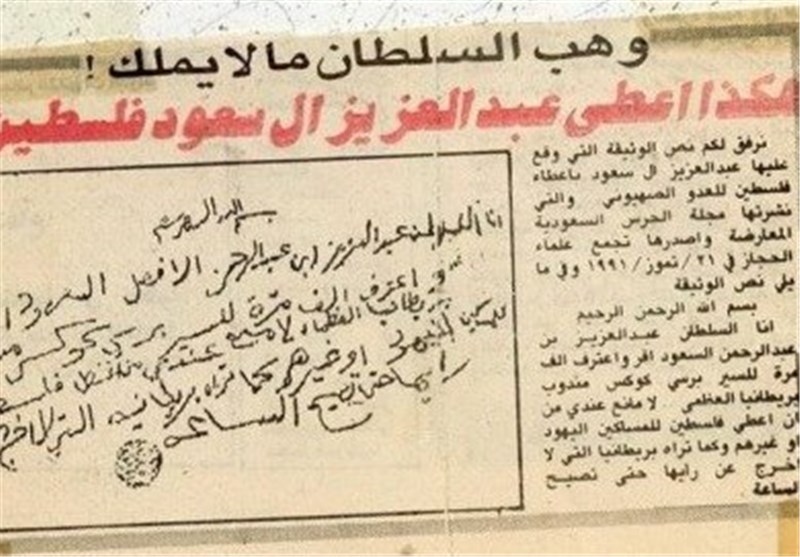 وهب السلطان ما لا يملك !
هكذا اعطى عبد العزيز ال سعود فلسطين
نرفق لكم نص الوثيقة التي وقع
عليها عبدالعزيز ال سعود باعطاء
فلسطين للعدو الصهيوني والتي
نشرتها مجلة الحرس السعودية
المعارضة واصدرها تجمع علماء
الحجاز في ٢١/تموز/١٩٩١ وفي ما
يلي نص الوثيقة
بسم الله الرحمن الرحيم
انا السلطان عبدالعزيز بن
عبدالرحمن السعود اقر واعترف الف
مرة للسير برسي كوكس مندوب
بريطانيا العظمى لا مانع عندي من
ان اعطي فلسطين للمساكين اليهود
او غيرهم وكما تراه بريطانيا التي لا
اخرج عن رايها حتى تصيح
الساعة
بسم الله الرحمن الرحيم
انا السلطان عبد العزيز ابن عبد الرحمن الفيصل السعود
واعترف الف مرة للسير برسي كوكس
بريطانيا العظمى لا مانع عندي من اعطي فلسطين
للمساكين اليهود او غيرهم كما تراه بريطانيه التي لا اخرج
رايها حتى تصيح الساعه